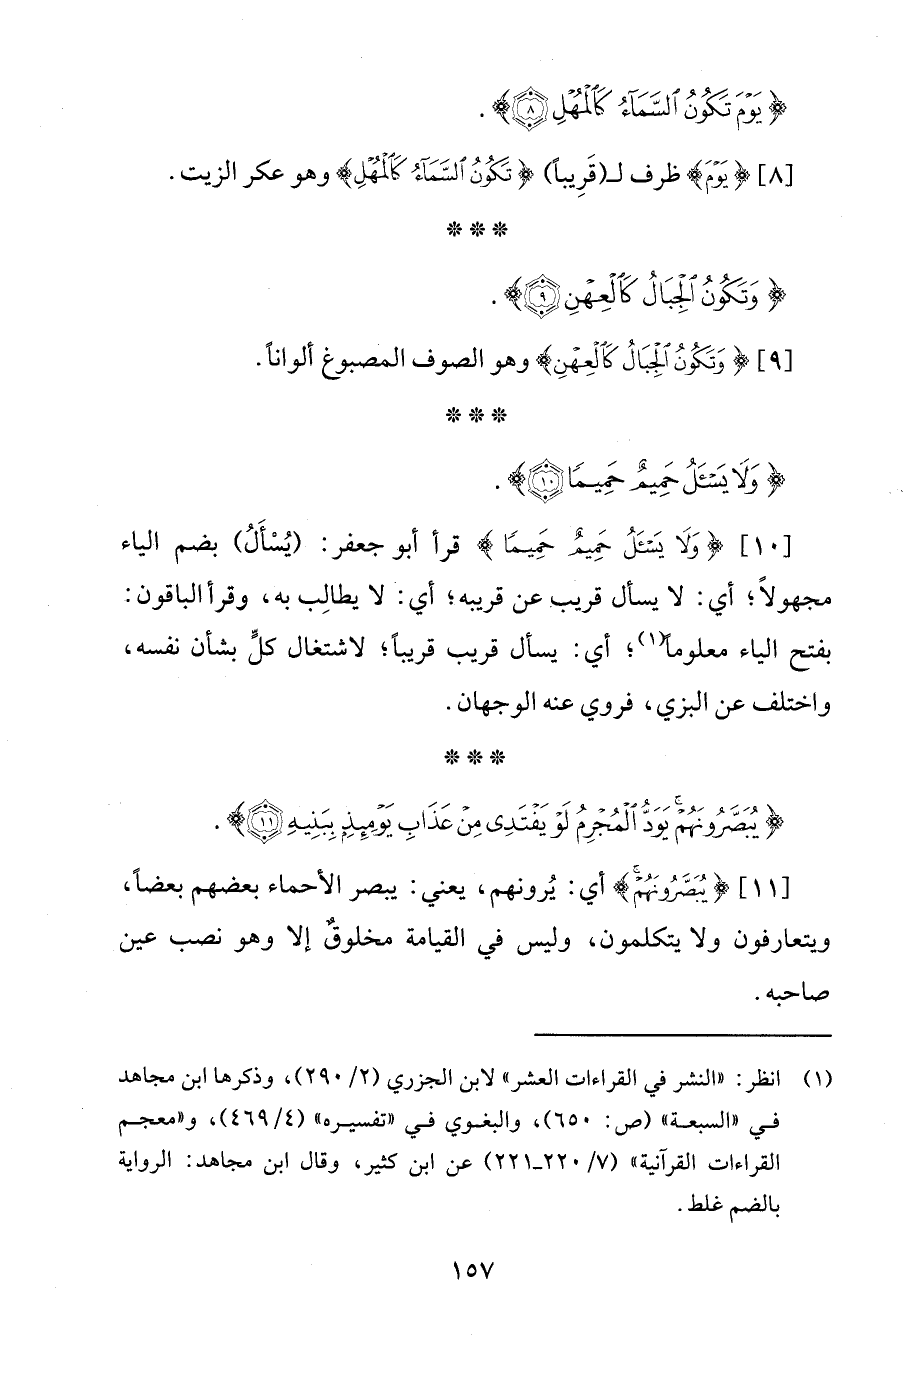 ﴿ يَوْمَ تَكُونُ ٱلسَّمَآءُ كَٱلْمُهْلِ ٨ ﴾ .
[٨] ﴿ يَوْمَ ﴾ ظرف لـ(قَرِيباً) ﴿ تَكُونُ ٱلسَّمَآءُ كَٱلْمُهْلِ ﴾ وهو عكر الزيت .
* * *
﴿ وَتَكُونُ ٱلْجِبَالُ كَٱلْعِهْنِ ٩ ﴾ .
[٩] ﴿ وَتَكُونُ ٱلْجِبَالُ كَٱلْعِهْنِ ﴾ وهو الصوف المصبوغ ألواناً .
* * *
﴿ وَلَا يَسْـَٔلُ حَمِيمٌ حَمِيمًا ١٠ ﴾ .
[١٠] ﴿ وَلَا يَسْـَٔلُ حَمِيمٌ حَمِيمًا ﴾ قرأ أبو جعفر : (يُسْأَلُ) بضم الياء
مجهولاً ؛ أي : لا يسأل قريب عن قريبه ؛ أي : لا يطالِب به ، وقرأ الباقون :
بفتح الياء معلوماً(١) ؛ أي : يسأل قريب قريباً ؛ لاشتغال كلٍّ بشأن نفسه ،
واختلف عن البزي ، فروي عنه الوجهان .
* * *
﴿ يُبَصَّرُونَهُمْ ۚ يَوَدُّ ٱلْمُجْرِمُ لَوْ يَفْتَدِى مِنْ عَذَابِ يَوْمِئِذٍ بِبَنِيهِ ١١ ﴾ .
[١١] ﴿ يُبَصَّرُونَهُمْ ۚ ﴾ أي : يُرونهم ، يعني : يبصر الأحماء بعضهم بعضاً ،
ويتعارفون ولا يتكلمون ، وليس في القيامة مخلوقٌ إلا وهو نصب عين
صاحبه .
(١) انظر : «النشر في القراءات العشر» لابن الجزري (٢/ ٢٩٠) ، وذكرها ابن مجاهد
في «السبعة» (ص : ٦٥٠) ، والبغوي في «تفسيره» (٤/ ٤٦٩) ، و«معجم
القراءات القرآنية» (٧/ ٢٢٠ـ٢٢١) عن ابن كثير ، وقال ابن مجاهد : الرواية
بالضم غلط .
١٥٧